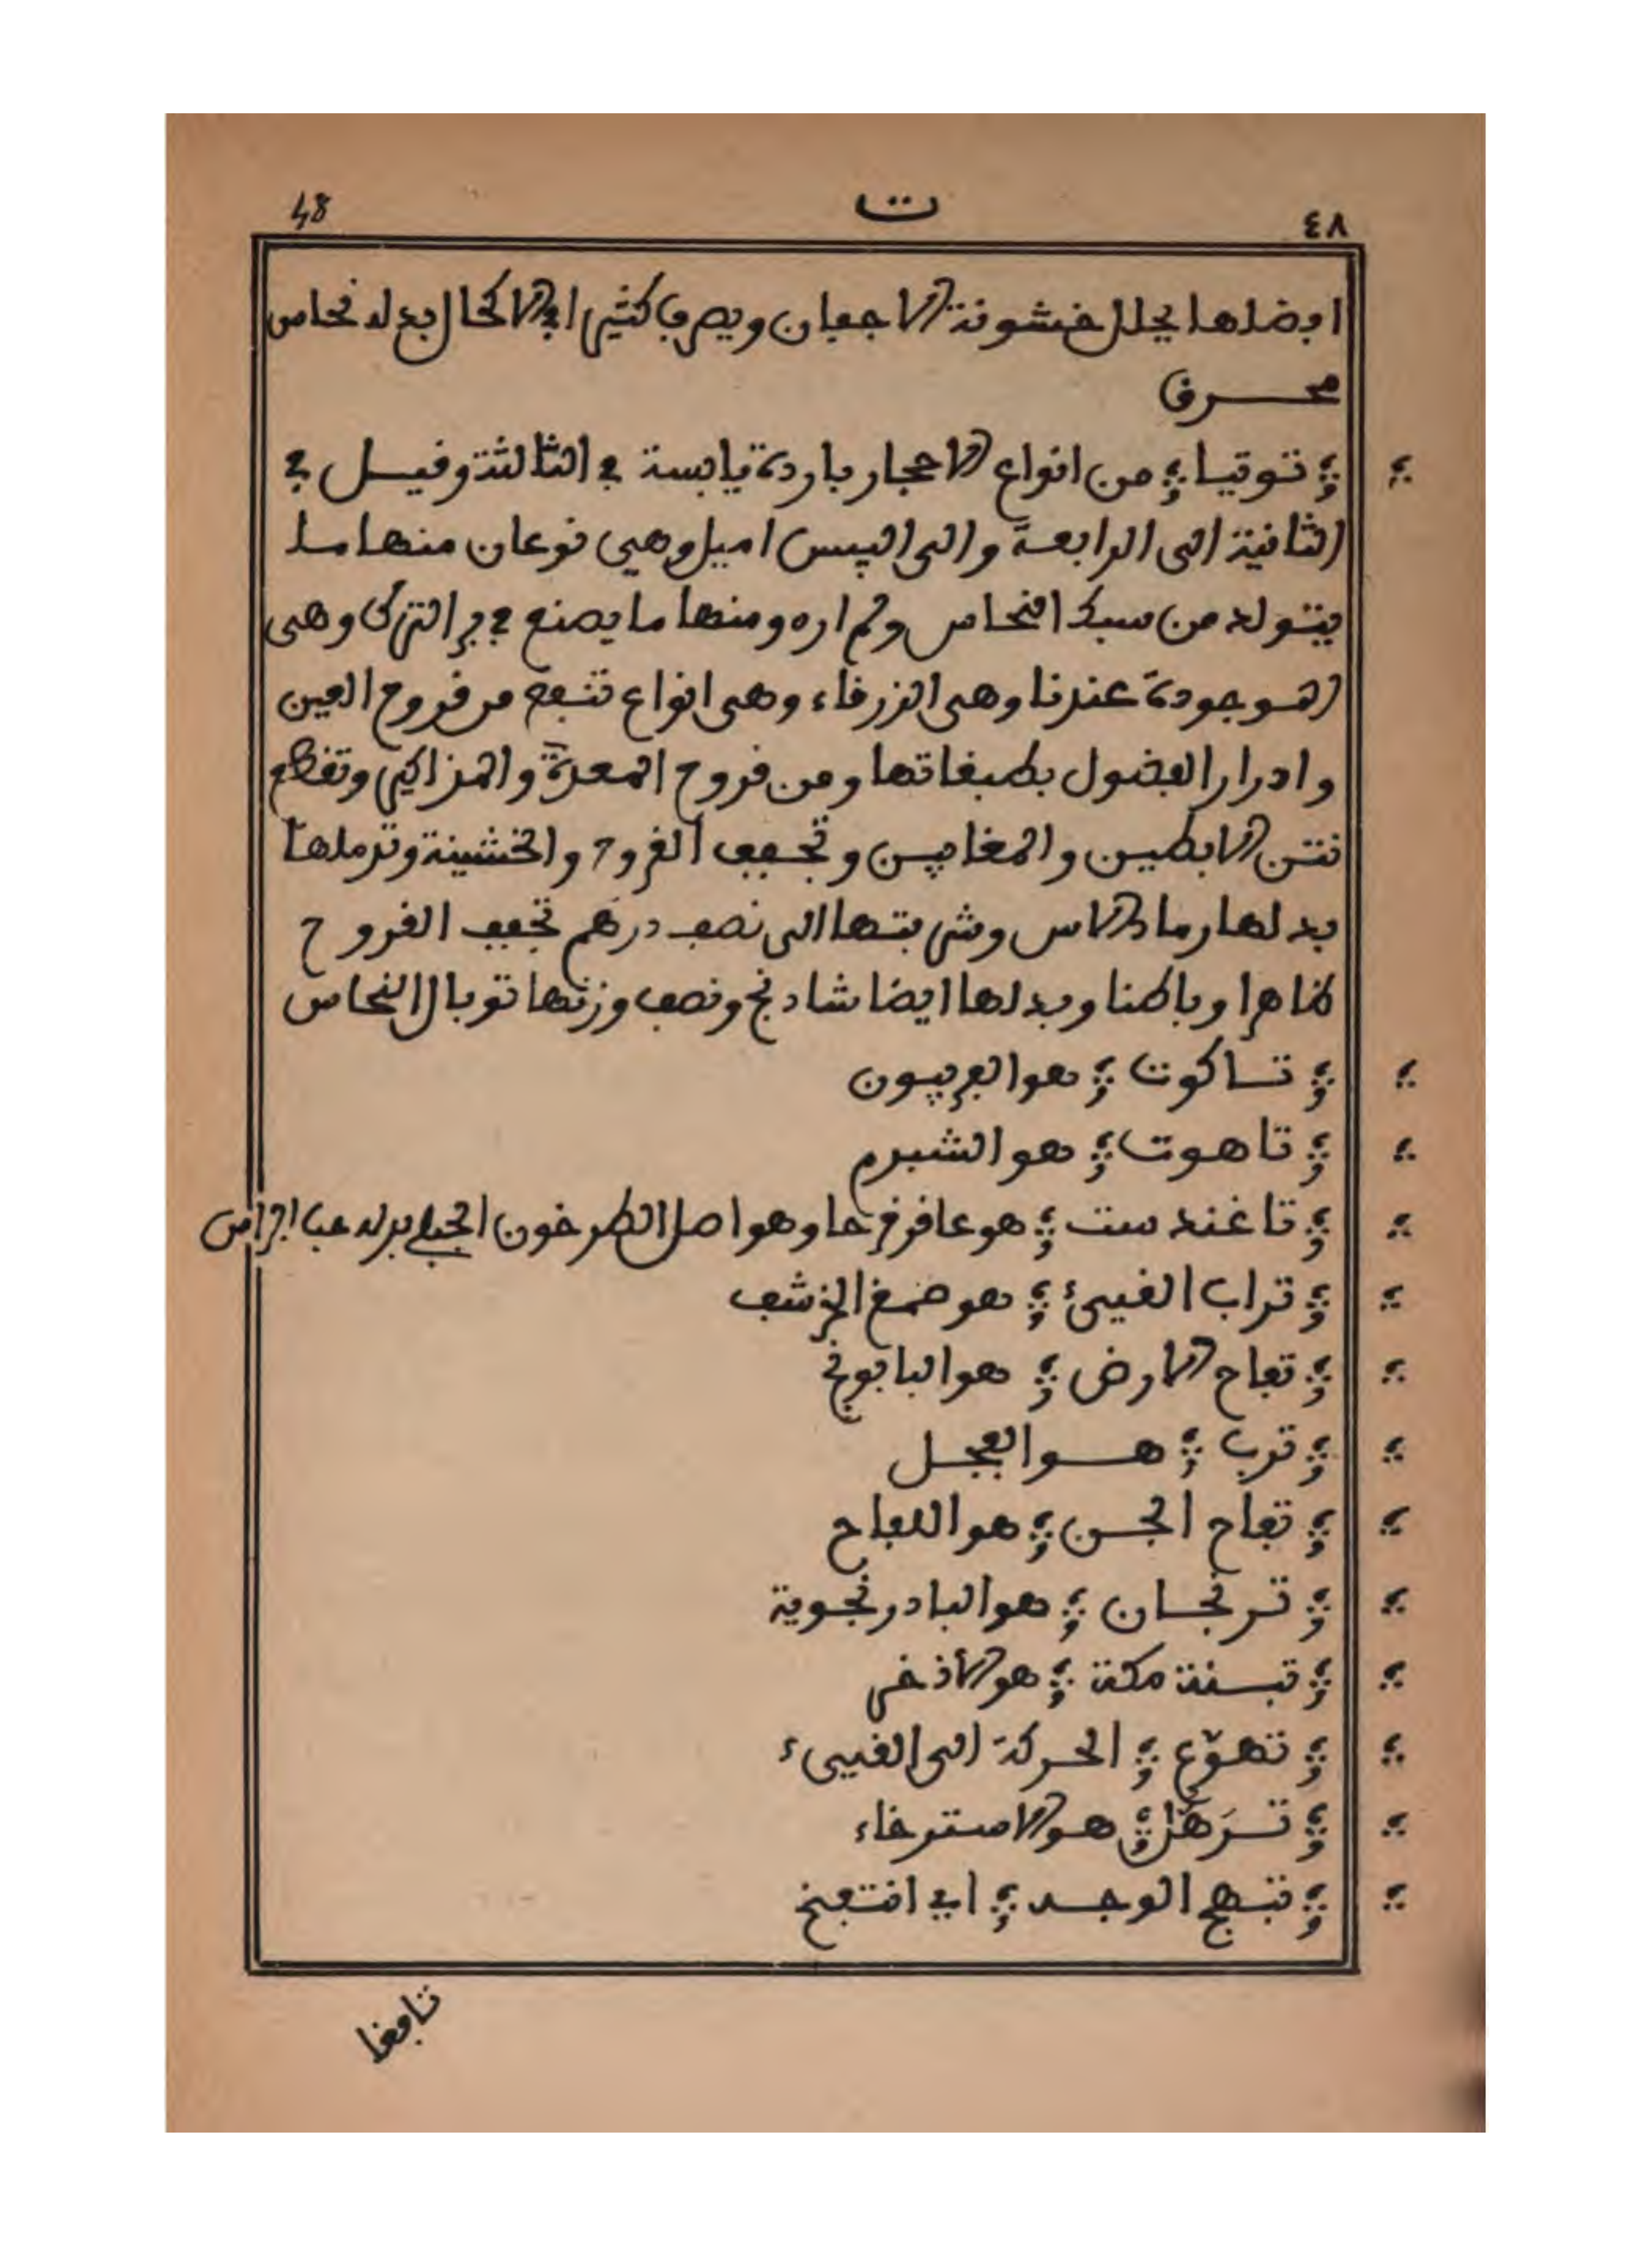 48 ت ٤٨
افضلها يحلل خشونة الاجفان ويصرف كثيرا في الاكحال بدله نحاس
محرق
توتيا من انواع الاحجار باردة يابسة في الثالثة وقيل في
الثانية الى الرابعة والى اليبس اميل وهي نوعان منها ما
يتولد من سبك النحاس ولم اره ومنها ما يصنع في بر الترك وهى
الموجودة عندنا وهى الزرقاء وهى انواع تنفع من قروح العين
وادرار الفضول بطبقاتها ومن قروح المعدة والمزاكير وتقطع
نتن الابطين والمغابن وتجفف القروح والخشينة وترملها
بدلها رماد الاس وشربتها الى نصف درهم تجفف القروح
ظاهرا وباطنا وبدلها ايضا شادنج ونصف وزنها توبال النحاس
تاكوت هو الفربيون
تاهوت هو الشبرم
تاغندست هو عاقرقرحا وهو اصل الطرخون الجبلي بدله حب الراس
تراب القيئ هو ضمغ الخرشف
تفاح الارض هو البابونج
ترب هو الفجل
تفاح الجن هو اللفاح
ترنجان هو البادرنجوية
تبنة مكة هو الأذخر
تهوّع الحركة الى القيىء
ترَهّل هو الاسترخاء
تبهج الوجه اي انتفخ
تافغا